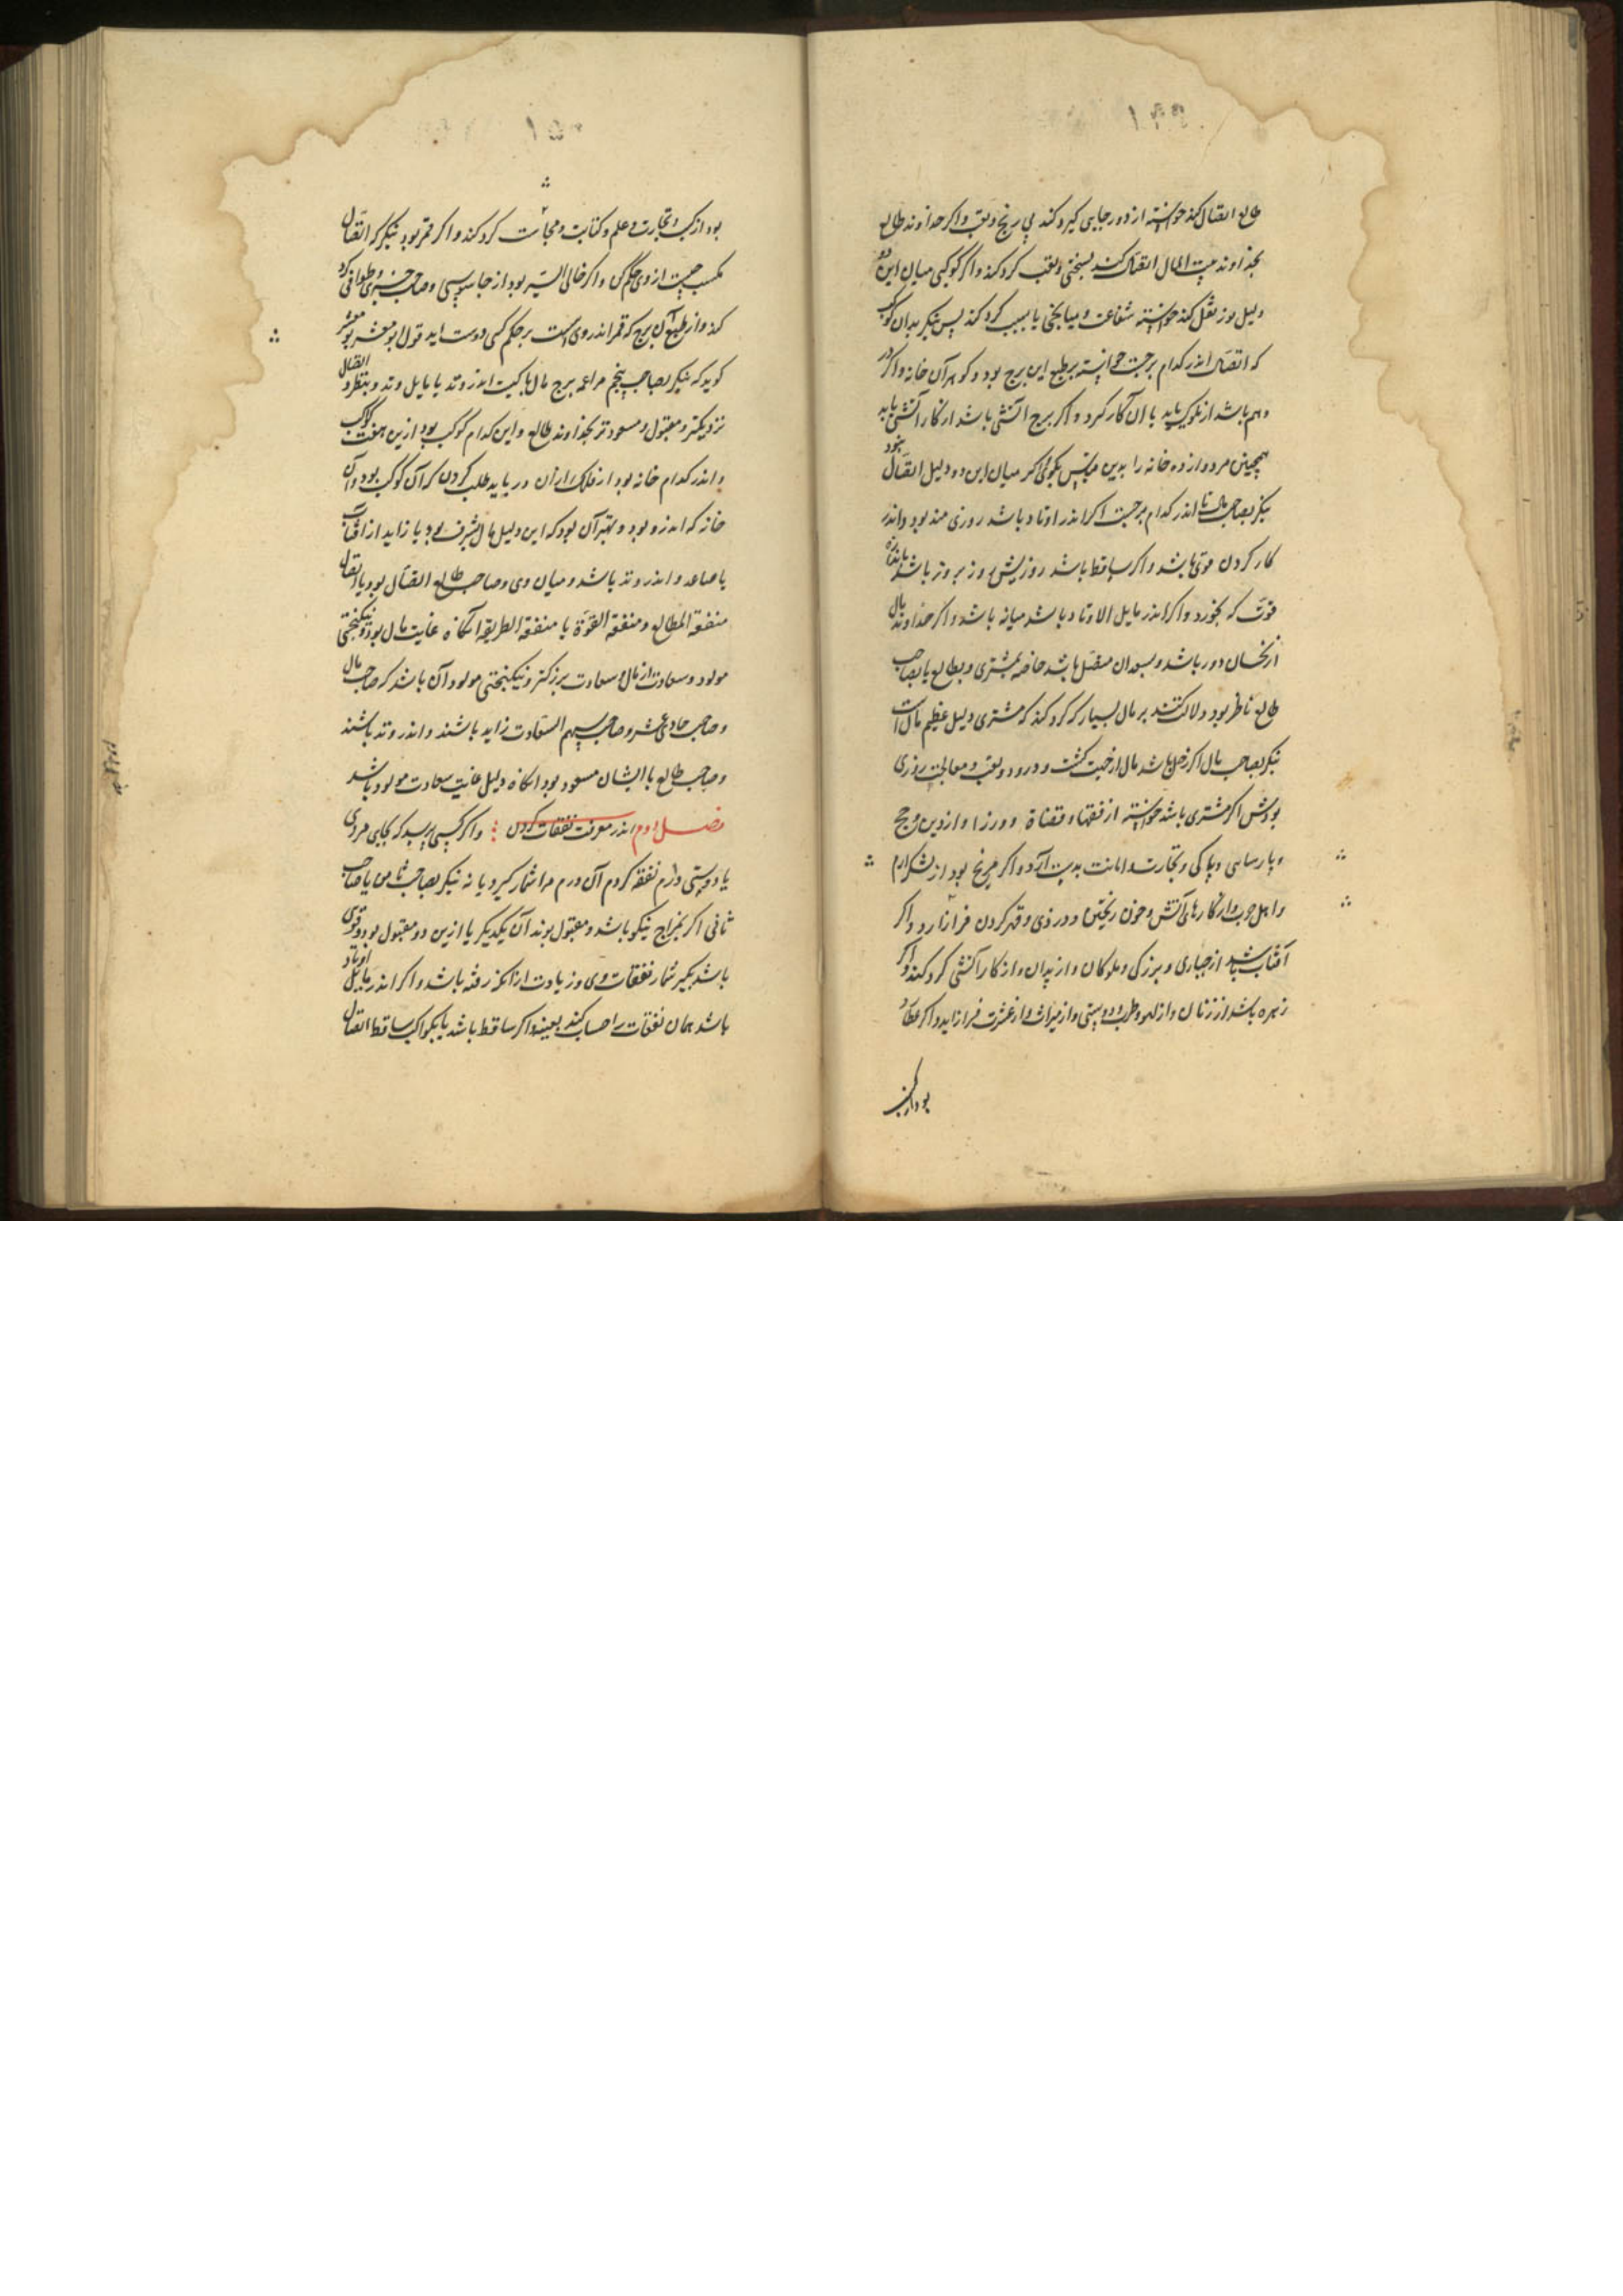 طالع اتصال کند خواسته از دور جایی گیرد کند بی رنج و تعب و اگر خداوند طالع
بخداوند بیت المال اتصال کند بسختی و تعب گرد کند و اگر کوکبی میان این دو
دلیل نور نقل کند خواسته شفاعت و میانجی یا بسبب گرد کند پس بنگر بدان کوکب
که اتصال اندر کدام برجست خواسته بر طبع این برج بود و گوهر آن خانه و اگر در
وهم باشد از ملوک یابد با آن کار گیرد و اگر برج آتشی باشد از کار آتشی یابد
همچنین مر دوازده خانه را بدین قیاس بگوی اگر میان این دو دلیل اتصال نبود
بنگر بصاحب اندر کدام برجست اگر اندر اوتاد باشد روزی مند بود و اندر
کار کردن موتی باشد و اگر ساقط باشد روزیش روز بروز باشد باندازه
قوت که بخورد و اگر اندر مایل الاوتاد باشد میانه باشد و اگر خداوند مال
از نحسان دور باشد و بسعدان متصل باشد خاصه بمشتری و بطالع یا بصاحب
طالع ناظر بود دلالت کنند بر مال بسیار که گرد کند که مشتری دلیل عظیم مال است
بنگر بصاحب مال اگر زحل باشد مال از جهت کشت و درود و تعب و معالجت روزی
بودش اگر مشتری باشد خواسته از فقها و قضاة و وزرا و از دین و حج
و پارسایی و پاکی و تجارت و امانت بدست آرد و اگر مریخ بود از لشکر
و اهل حرب و از کارهای آتش و خون ریختن و دزدی و قهر کردن فراز آرد و اگر
آفتاب باشد از جباری و بزرگی و ملوکان و از پدران و از کار آتشی گرد کند و اگر
زهره باشد از زنان و از لهو و طرب و دوستی و از میراث و از عشرت فراز آید و اگر عطارد
بود از کسب
۱۵۰
بود از کسب و تجارت و علم و کتابت و گرد کند و اگر قمر بود بنگر که اتصال
بکیست از وی حکم کن و اگر خالی السیر بود از جاسوسی و صاحب خبری و طوافی گرد
کند و از طبع آن برج که قمر اندر وی است بر حکم کنی درست آید قول بومعشر بومعشر
گوید که بنگر بصاحب پنجم مر برج مال را کیست اندر وتد یا مایل وتد و بنظر و اتصال
نزدیکتر و مقبول و مسعود تر بخداوند طالع و این کدام کوکب بود ازین هفت کوکب
و اندر کدام خانه بود از فلک از آن در باید طلب کردن کز آن کوکب بود و آن
خانه که اندرو بود و بهتر آن بود که این دلیل مال شریف بود یا زاید از آفتاب
یا صاعد و اندر وتد باشد و میان وی و صاحب طالع اتصال بود یا اتصال
متفقة المطالع و متفقة القوة یا متفقة الطریقه آنگاه غایت مال بود و نیکبختی
مولود و سعادت از مال و سعادت بزرگتر و نیکبختی مولود آن باشد که صاحب مال
و صاحب حادی عشر و صاحب سهم السعادت زاید باشند و اندر وتد باشند
و صاحب طالع با ایشان مسعود بود آنگاه دلیل غایت سعادت مولود باشد
فصل دوم اندر معرفت نفقات کردن و اگر کسی پرسد که بجای مردی
یا دوستی درم نفقه کردم آن درم مرا شمار گیرد یا نه بنگر بصاحب یا صاحب
ثانی اگر بمزاج نیکو باشد و مقبول بوند آن یکدیگر یا ازین دو مقبول بود و قوی
باشد بگیر شمار نفقات وی و زیادت از آنکه رفته باشد و اگر اندر مایل اوتاد
باشد همان نفقات را حساب کند بعینه و اگر ساقط باشد یا بکواکب ساقط اتصال